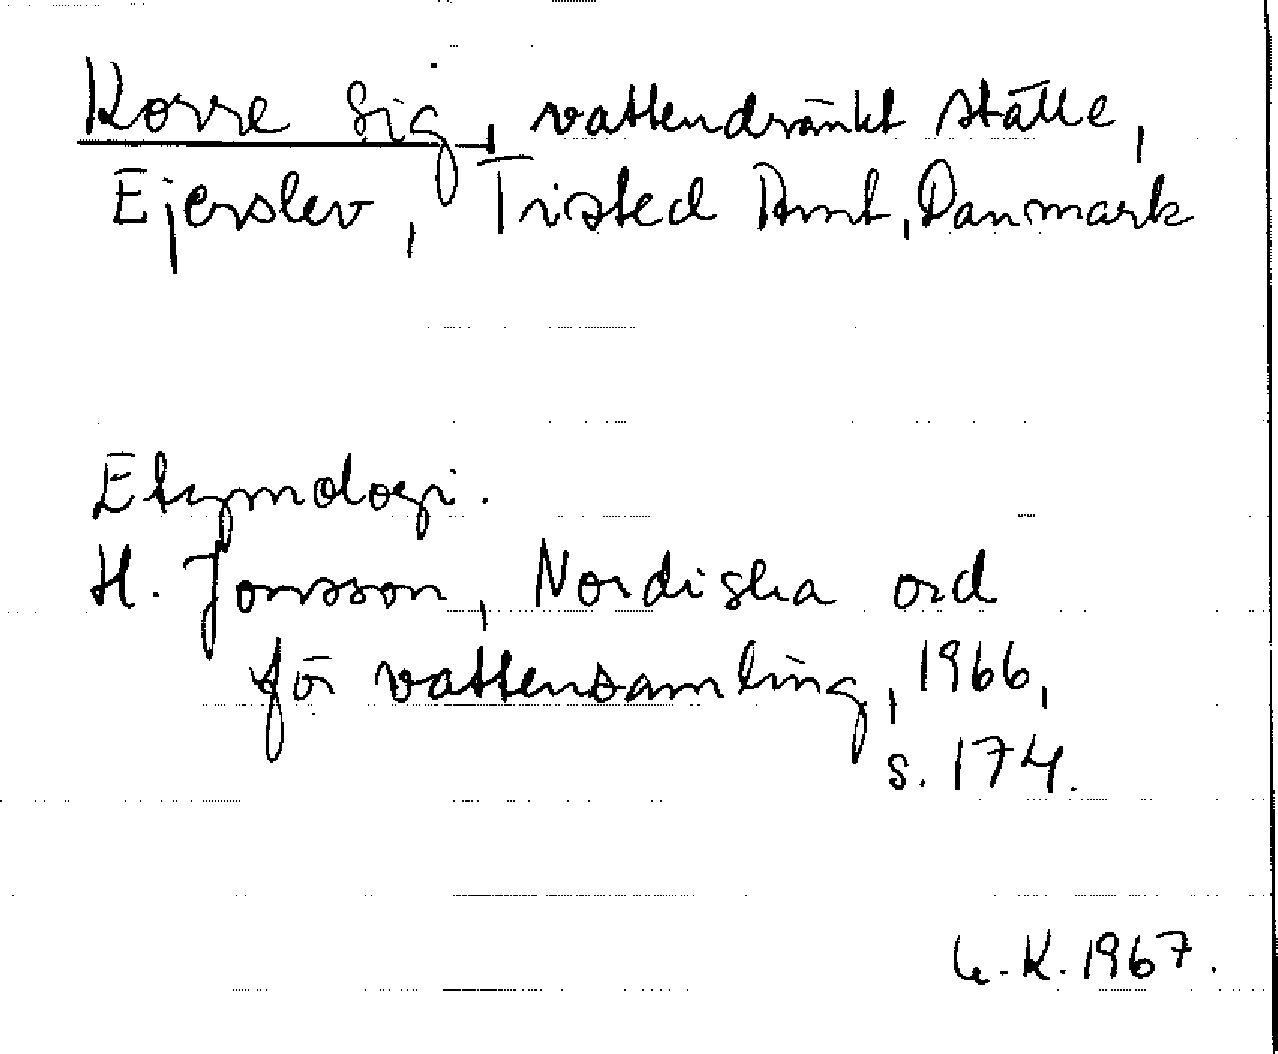 Korre Sig, vattendränkt ställe,
Ejerslev, Tristed Amt, Danmark
Etymologi.
H. Jonsson, Nordiska ord
för vattensamling, 1966,
s. 174.
K. 1967.